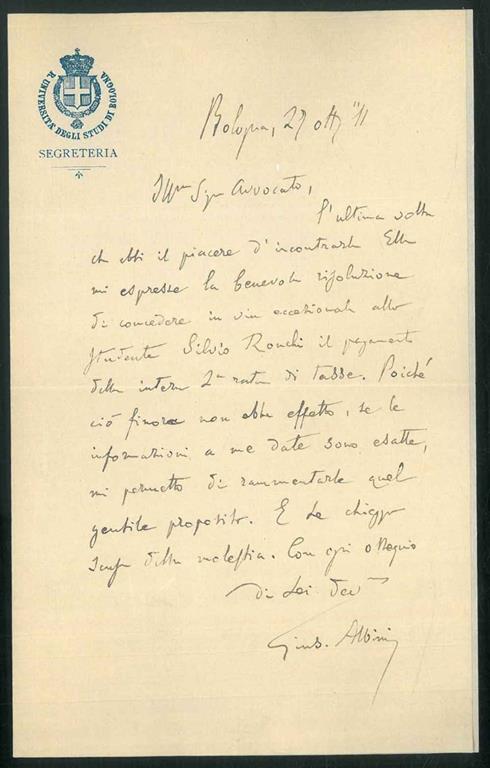 R. UNIVERSITÀ DEGLI STUDI DI BOLOGNA
SEGRETERIA
Bologna, 27 ott. '11
Ill.mo Sign Avvocato,
l'ultima volta
ch ebbi il piacere d'incontrarla Ella
mi espresse la benevola risoluzione
di concedere in via eccezionale allo
studente Silvio Ronchi il pagamento
della intera 2a rata di tasse. Poiché
ciò finora non ebbe effetto, se le
informazioni a me date sono esatte,
mi permetto di rammentarle quel
gentile proposito. E Le chieggo
scusa della molestia. Con ogni ossequio
di Lei dev
Gius. Albini